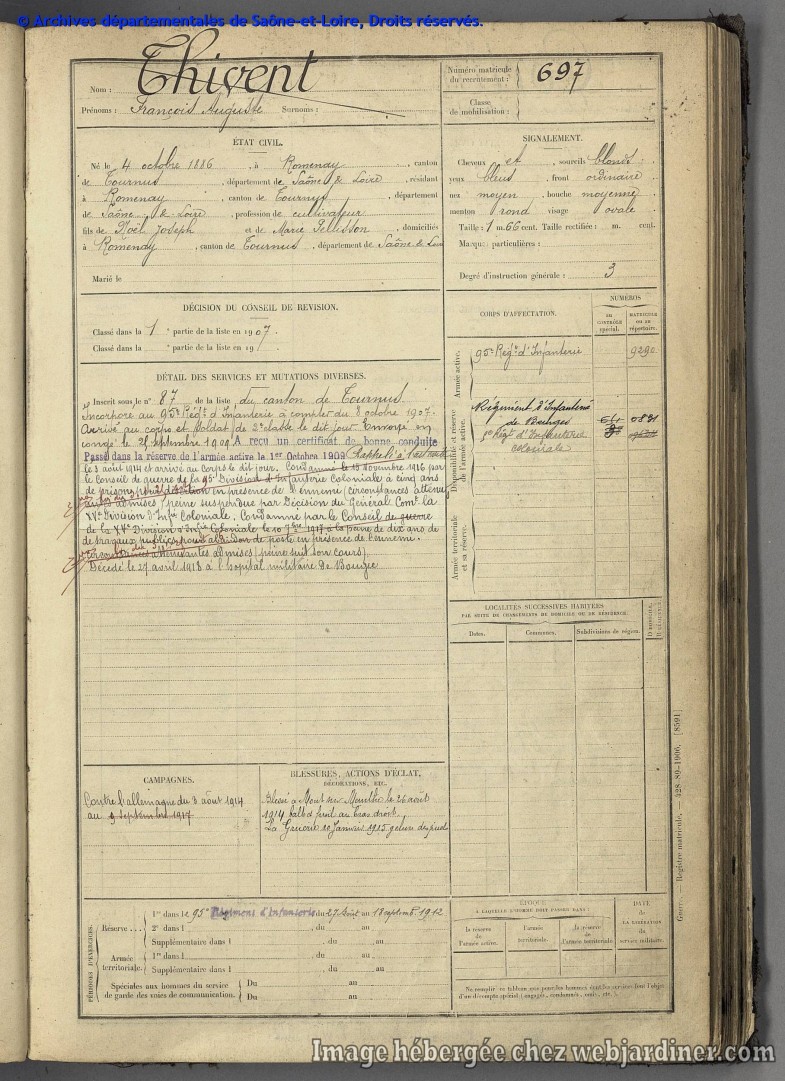 © Archives départementales de Saône-et-Loire, Droits réservés.
Nom : Thivent
Prénoms : François Auguste Surnoms :
Numéro matricule du recrutement : 697
Classe de mobilisation :
ÉTAT CIVIL.
Né le 4 octobre 1886, à Romenay, canton
de Tournus, département de Saône & Loire, résidant
à Romenay, canton de Tournus, département
de Saône & Loire, profession de cultivateur
fils de Noël Joseph et de Marie Pellisson, domiciliés
à Romenay, canton de Tournus, département de Saône & Loire
Marié le
SIGNALEMENT.
Cheveux et sourcils blonds
yeux bleus, front ordinaire
nez moyen, bouche moyenne
menton rond visage ovale
Taille : 1 m. 66 cent. Taille rectifiée : m. cent.
Marques particulières :
Degré d'instruction générale : 3
DÉCISION DU CONSEIL DE REVISION.
Classé dans la 1e partie de la liste en 1907.
Classé dans la e partie de la liste en 19
CORPS D'AFFECTATION.
NUMÉROS
AU CONTRÔLE spécial.
MATRICULE OU AU répertoire.
Armée active.
95e Régt d'Infanterie 9290
Disponibilité et réserve de l'armée active.
Régiment d'Infanterie
de Bourges
5e Régt d'Infanterie
coloniale
Armée territoriale et sa réserve.
DÉTAIL DES SERVICES ET MUTATIONS DIVERSES.
Inscrit sous le n° 87 de la liste du canton de Tournus
Incorporé au 95e Régt d'Infanterie à compter du 8 octobre 1907.
Arrivé au corps et soldat de 2e classe le dit jour. Envoyé en
congé le 25 septembre 1909. A reçu un certificat de bonne conduite
Passé dans la réserve de l'armée active le 1er Octobre 1909 Rappelé à l'activité
le 3 août 1914 et arrivé au corps le dit jour. Condamné le 15 novembre 1916 par
le Conseil de guerre de la 15e Division d'Infanterie Coloniale à cinq ans
de prison pour désertion en présence de l'ennemi (circonstances atténu
antes admises) peine suspendue par Décision du Général Comt la
XVe Division d'Infie Coloniale. Condamné par le Conseil de guerre
de la XVe Division d'Infie Coloniale le 10 7bre 1917 à la peine de dix ans de
de travaux publics pour abandon de poste en présence de l'ennemi.
circonstances atténuantes admises (peine suit son cours)
Décédé le 27 avril 1918 à l'hopital militaire de Bougie
LOCALITÉS SUCCESSIVES HABITÉES
PAR SUITE DE CHANGEMENTS DE DOMICILE OU DE RÉSIDENCE.
Dates. Communes. Subdivisions de région.
CAMPAGNES.
Contre l'allemagne du 3 août 1914
au 9 septembre 1917
BLESSURES, ACTIONS D'ÉCLAT,
DÉCORATIONS, ETC.
Blessé à Mont sur Meurthe le 26 août
1914 balle de fusil au bras droit.
10 Janvier 1915 gelure des pieds
PÉRIODES D'EXERCICES.
Réserve
1re dans le 95e Régiment d'Infanterie du 27 Août au 18 septemb. 1912
2e dans l , du au
Supplémentaire dans l , du au
Armée territoriale.
1re dans l , du au
Supplémentaire dans l , du au
Spéciales aux hommes du service de garde des voies de communication.
Du au
Du au
ÉPOQUE
À LAQUELLE L'HOMME DOIT PASSER DANS :
la réserve de l'armée active.
l'armée territoriale.
la réserve de l'armée territoriale.
DATE DE LA LIBÉRATION du service militaire.
Ne remplir ce tableau que pour les hommes dont les services font l'objet
d'un décompte spécial (engagés, condamnés, omis, etc.).
Guerre. — Registre matricule. — 428-89-1906. [8591]
Image hébergée chez webjardiner.com